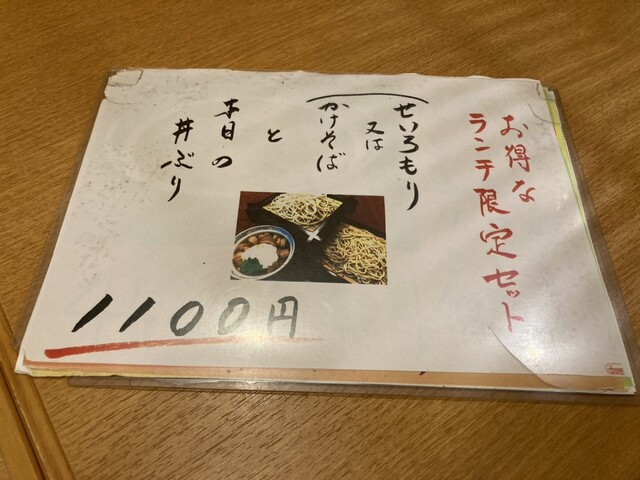 お得な
ランチ限定セット
せいろもり
又は
かけそば
と
本日の
丼ぶり
1100円